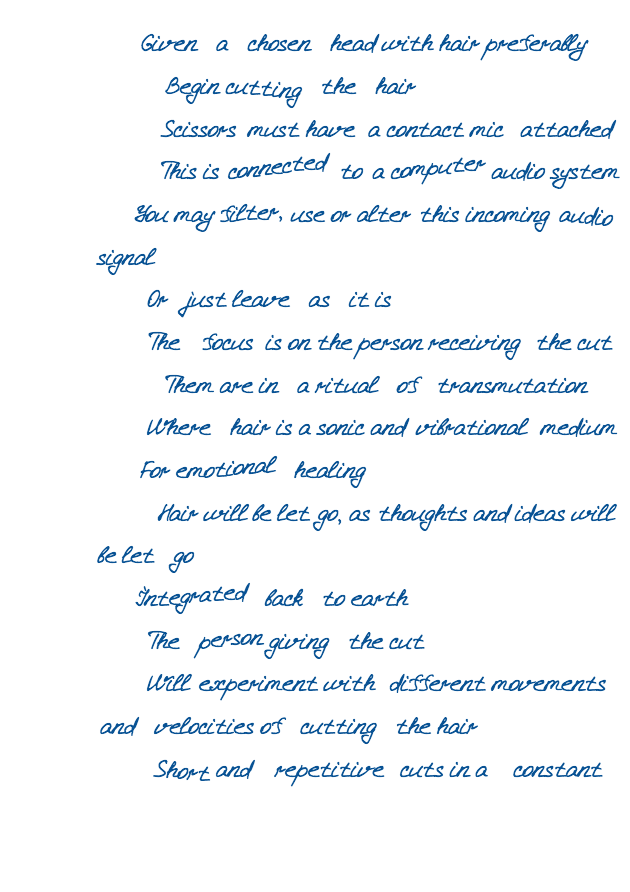 Given a chosen head with hair preferably
Begin cutting the hair
Scissors must have a contact mic attached
This is connected to a computer audio system
You may filter, use or alter this incoming audio
signal
Or just leave as it is
The focus is on the person receiving the cut
Them are in a ritual of transmutation
Where hair is a sonic and vibrational medium
For emotional healing
Hair will be let go, as thoughts and ideas will
be let go
Integrated back to earth
The person giving the cut
Will experiment with different movements
and velocities of cutting the hair
Short and repetitive cuts in a constant